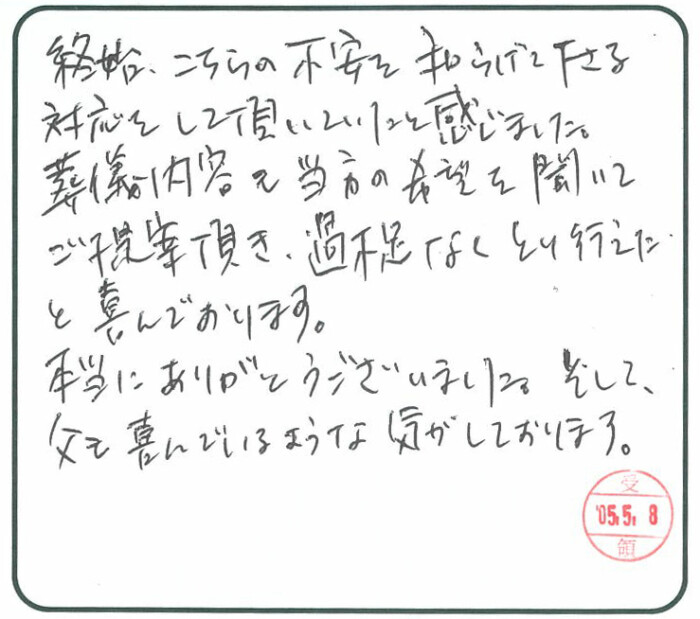 終始、こちらの不安を和らげて下さる
対応をして頂いていたと感じました。
葬儀内容も当方の希望を聞いて
ご提案頂き、過不足なくとり行えた
と喜んでおります。
本当にありがとうございました。そして、
父も喜んでいるような気がしております。
受
'05.5.8
領